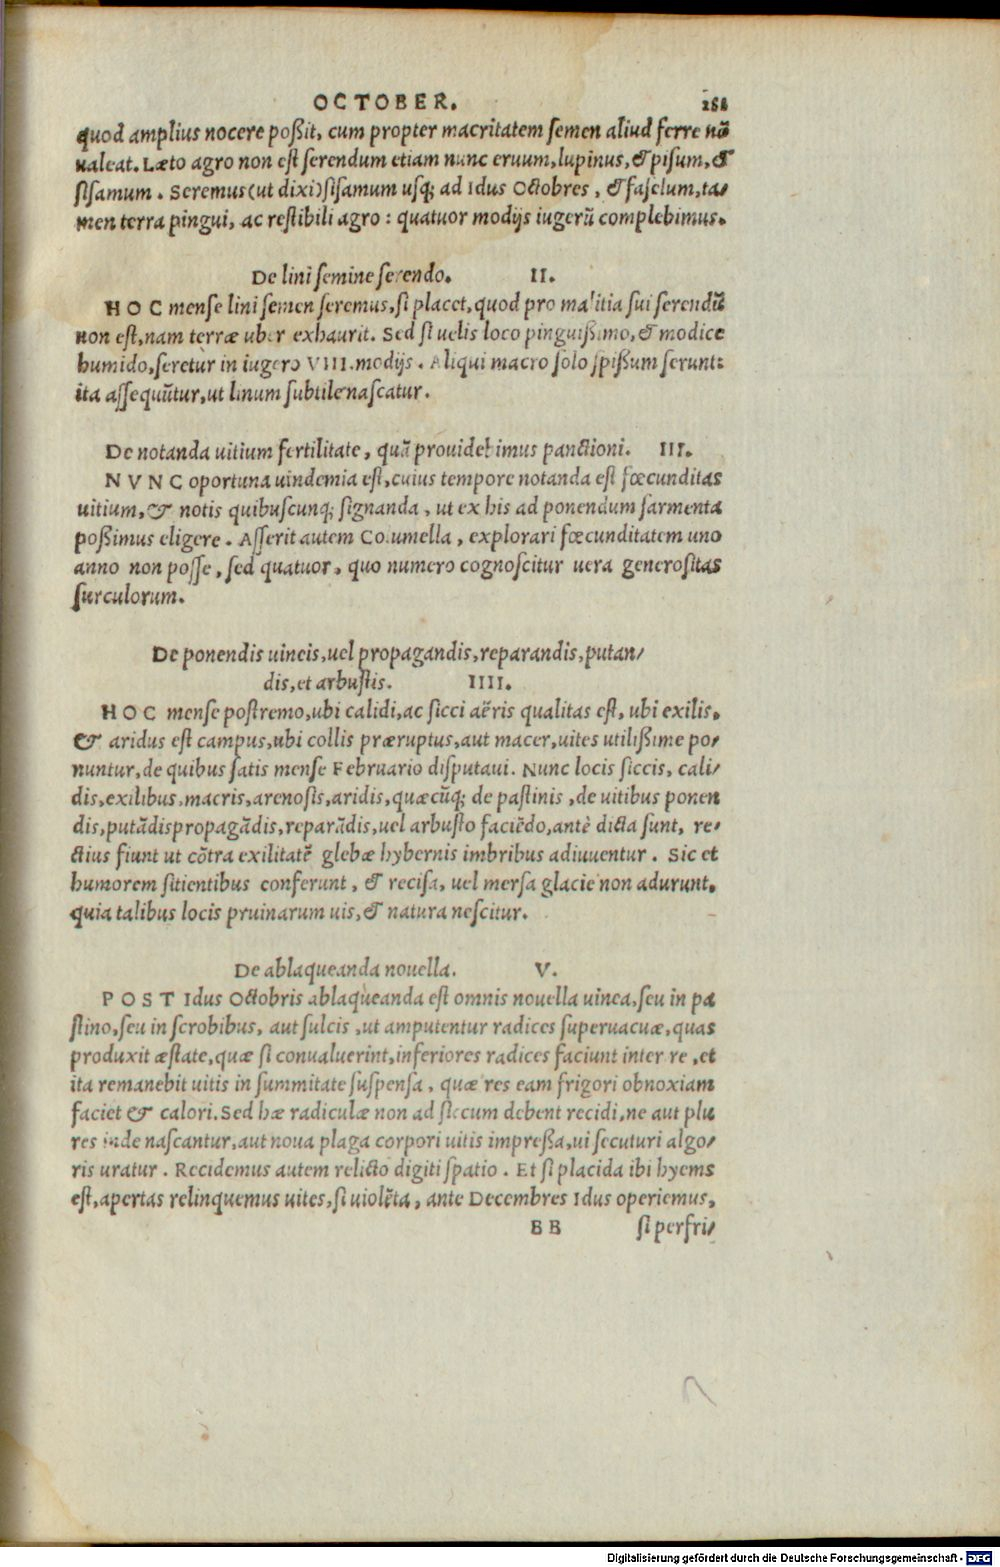 OCTOBER.
quod amplius nocere poßit, cum propter macritatem semen aliud ferre nō
ualeat. Læto agro non est serendum etiam nunc eruum, lupinus, & pisum, &
sisamum. Seremus (ut dixi) sisamum usq; ad Idus Octobres, & faselum, ta/
men terra pingui, ac restibili agro: quatuor modijs iugerū complebimus.
De lini semine serendo. II.
HOC mense lini semen seremus, si placet, quod pro malitia sui serendū
non est, nam terræ uber exhaurit. Sed si uelis loco pinguißimo, & modice
humido, seretur in iugero VIII. modijs. Aliqui macro solo spißum serunt:
ita assequūtur, ut linum subtile nascatur.
De notanda uitium fertilitate, quā prouidebimus panctioni. III.
NVNC oportuna uindemia est, cuius tempore notanda est fœcunditas
uitium, & notis quibuscunq; signanda, ut ex his ad ponendum sarmenta
poßimus eligere. Asserit autem Columella, explorari fœcunditatem uno
anno non posse, sed quatuor, quo numero cognoscitur uera generositas
surculorum.
De ponendis uineis, uel propagandis, reparandis, putan/
dis, et arbustis. IIII.
HOC mense postremo, ubi calidi, ac sicci aëris qualitas est, ubi exilis,
& aridus est campus, ubi collis præruptus, aut macer, uites utilißime po/
nuntur, de quibus satis mense Februario disputaui. Nunc locis siccis, cali/
dis, exilibus, macris, arenosis, aridis, quæcūq; de pastinis, de uitibus ponen
dis, putādis propagādis, reparādis, uel arbusto faciēdo, antè dicta sunt, re/
ctius fiunt ut cōtra exilitatē glebæ hybernis imbribus adiuuentur. Sic et
humorem sitientibus conferunt, & recisa, uel mersa glacie non adurunt,
quia talibus locis pruinarum uis, & natura nescitur.
De ablaqueanda nouella. V.
POST Idus Octobris ablaqueanda est omnis nouella uinea, seu in pa
stino, seu in scrobibus, aut sulcis, ut amputentur radices superuacuæ, quas
produxit æstate, quæ si conualuerint, inferiores radices faciunt interire, et
ita remanebit uitis in summitate suspensa, quæ res eam frigori obnoxiam
faciet & calori. Sed hæ radiculæ non ad siccum debent recidi, ne aut plu
res inde nascantur, aut noua plaga corpori uitis impreßa, ui secuturi algo/
ris uratur. Recidemus autem relicto digiti spatio. Et si placida ibi hyems
est, apertas relinquemus uites, si uiolēta, ante Decembres Idus operiemus,
BB si perfri/
Digitalisierung gefördert durch die Deutsche Forschungsgemeinschaft - DFG